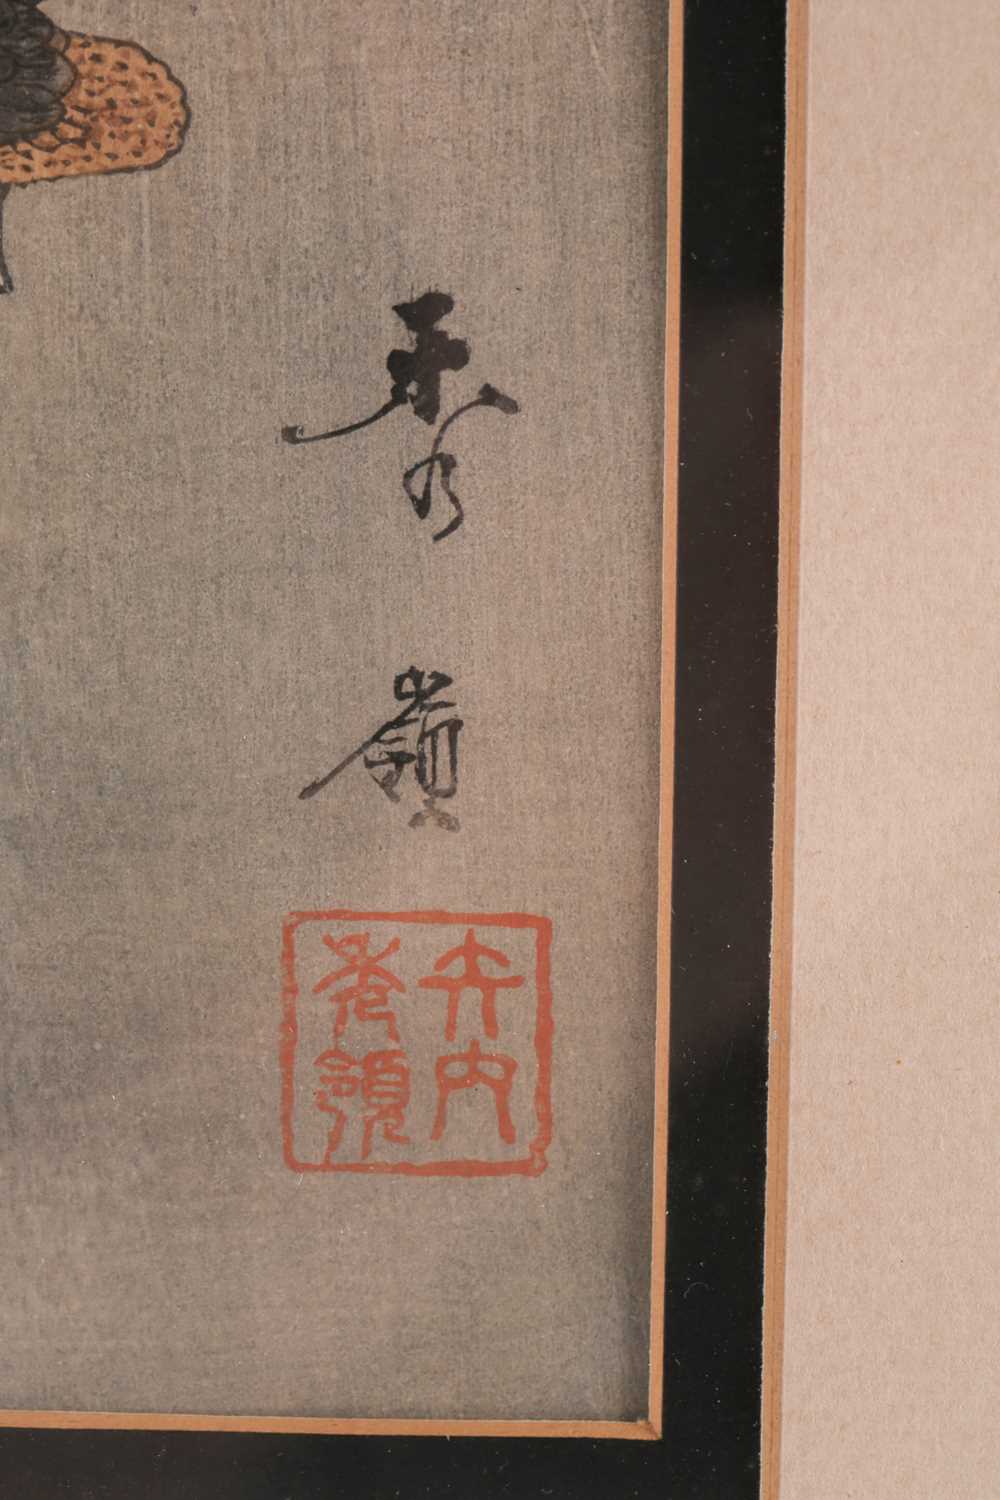 秀嶺
内
秀嶺